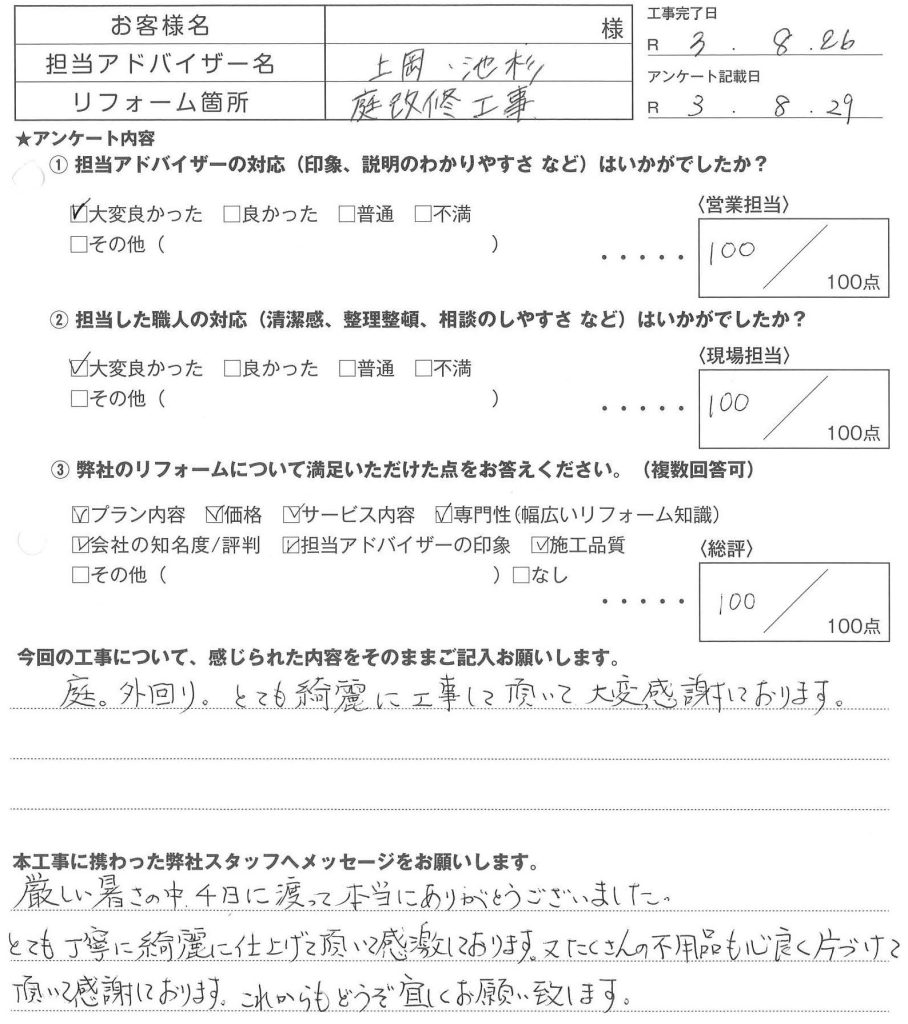 お客様名 様
担当アドバイザー名 土岡、池杉
リフォーム箇所 庭改修工事
工事完了日
R 3 . 8 .26
アンケート記載日
R 3 . 8 . 29
★アンケート内容
① 担当アドバイザーの対応（印象、説明のわかりやすさ など）はいかがでしたか？
☑大変良かった □良かった □普通 □不満
□その他（ ）
〈営業担当〉
・・・・・ 100 ／ 100点
② 担当した職人の対応（清潔感、整理整頓、相談のしやすさ など）はいかがでしたか？
☑大変良かった □良かった □普通 □不満
□その他（ ）
〈現場担当〉
・・・・・ 100 ／ 100点
③ 弊社のリフォームについて満足いただけた点をお答えください。（複数回答可）
☑プラン内容 ☑価格 ☑サービス内容 ☑専門性（幅広いリフォーム知識）
☑会社の知名度/評判 ☑担当アドバイザーの印象 ☑施工品質
□その他（ ）□なし
〈総評〉
・・・・・ 100 ／ 100点
今回の工事について、感じられた内容をそのままご記入お願いします。
庭。外回り。とても綺麗に工事して頂いて大変感謝しております。
本工事に携わった弊社スタッフへメッセージをお願いします。
厳しい暑さの中、4日に渡って本当にありがとうございました。
とても丁寧に綺麗に仕上げて頂いて感激しております。又たくさんの不用品も心良く片づけて
頂いて感謝しております。これからもどうぞ宜しくお願い致します。